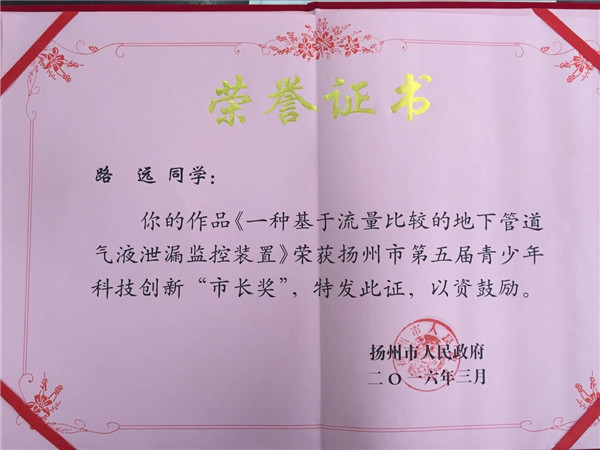 荣誉证书
路 远 同学：
你的作品《一种基于流量比较的地下管道
气液泄漏监控装置》荣获扬州市第五届青少年
科技创新“市长奖”，特发此证，以资鼓励。
扬州市人民政府
二〇一六年三月